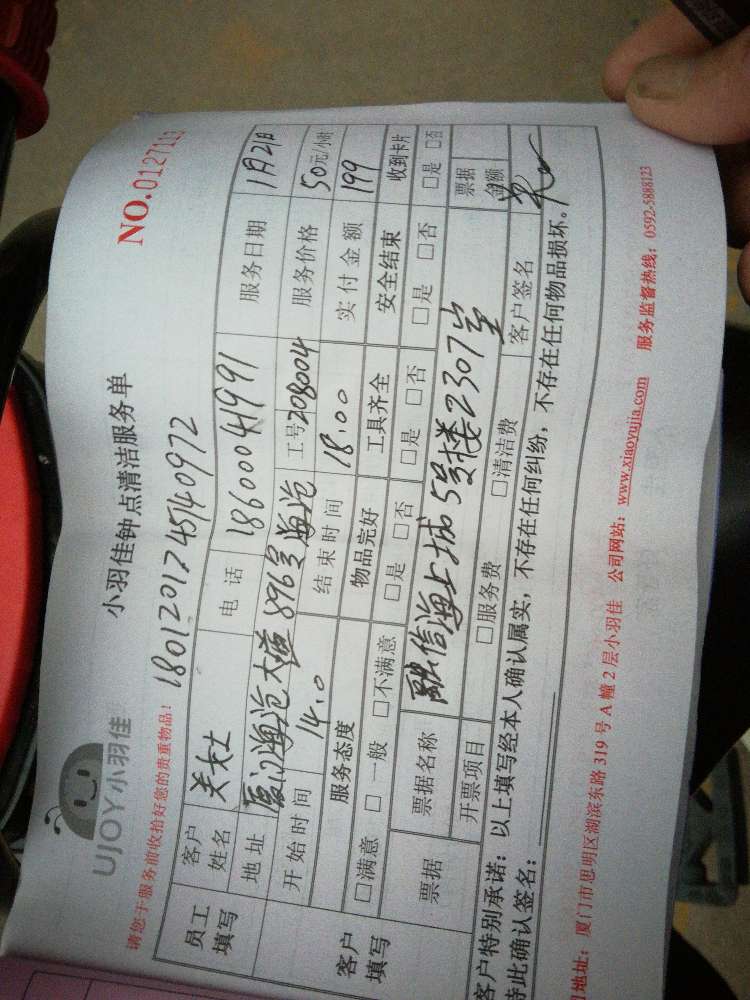 UJOY小羽佳
小羽佳钟点清洁服务单
NO.0127113
请您于服务前收拾好您的贵重物品!
180120124540972
员工填写
客户姓名 关女士 电话 18600041991 服务日期 1月21日
地址 厦门海沧大道896号海沧 工号 208004 服务价格 50元/小时
开始时间 14.0 结束时间 18.00 实付金额 199
客户填写
服务态度 物品完好 工具齐全 安全结束 收到卡片
□满意 □一般 □不满意 □是 □否 □是 □否 □是 □否 □是 □否
票据 票据名称 融信海上城5号楼2307室 票据金额
开票项目 □服务费 □清洁费 客户签名
客户特别承诺:以上填写经本人确认属实,不存在任何纠纷,不存在任何物品损坏。
特此确认签名:
地址:厦门市思明区湖滨东路319号A幢2层小羽佳 公司网站:www.xiaoyujia.com 服务监督热线:0592-5888123